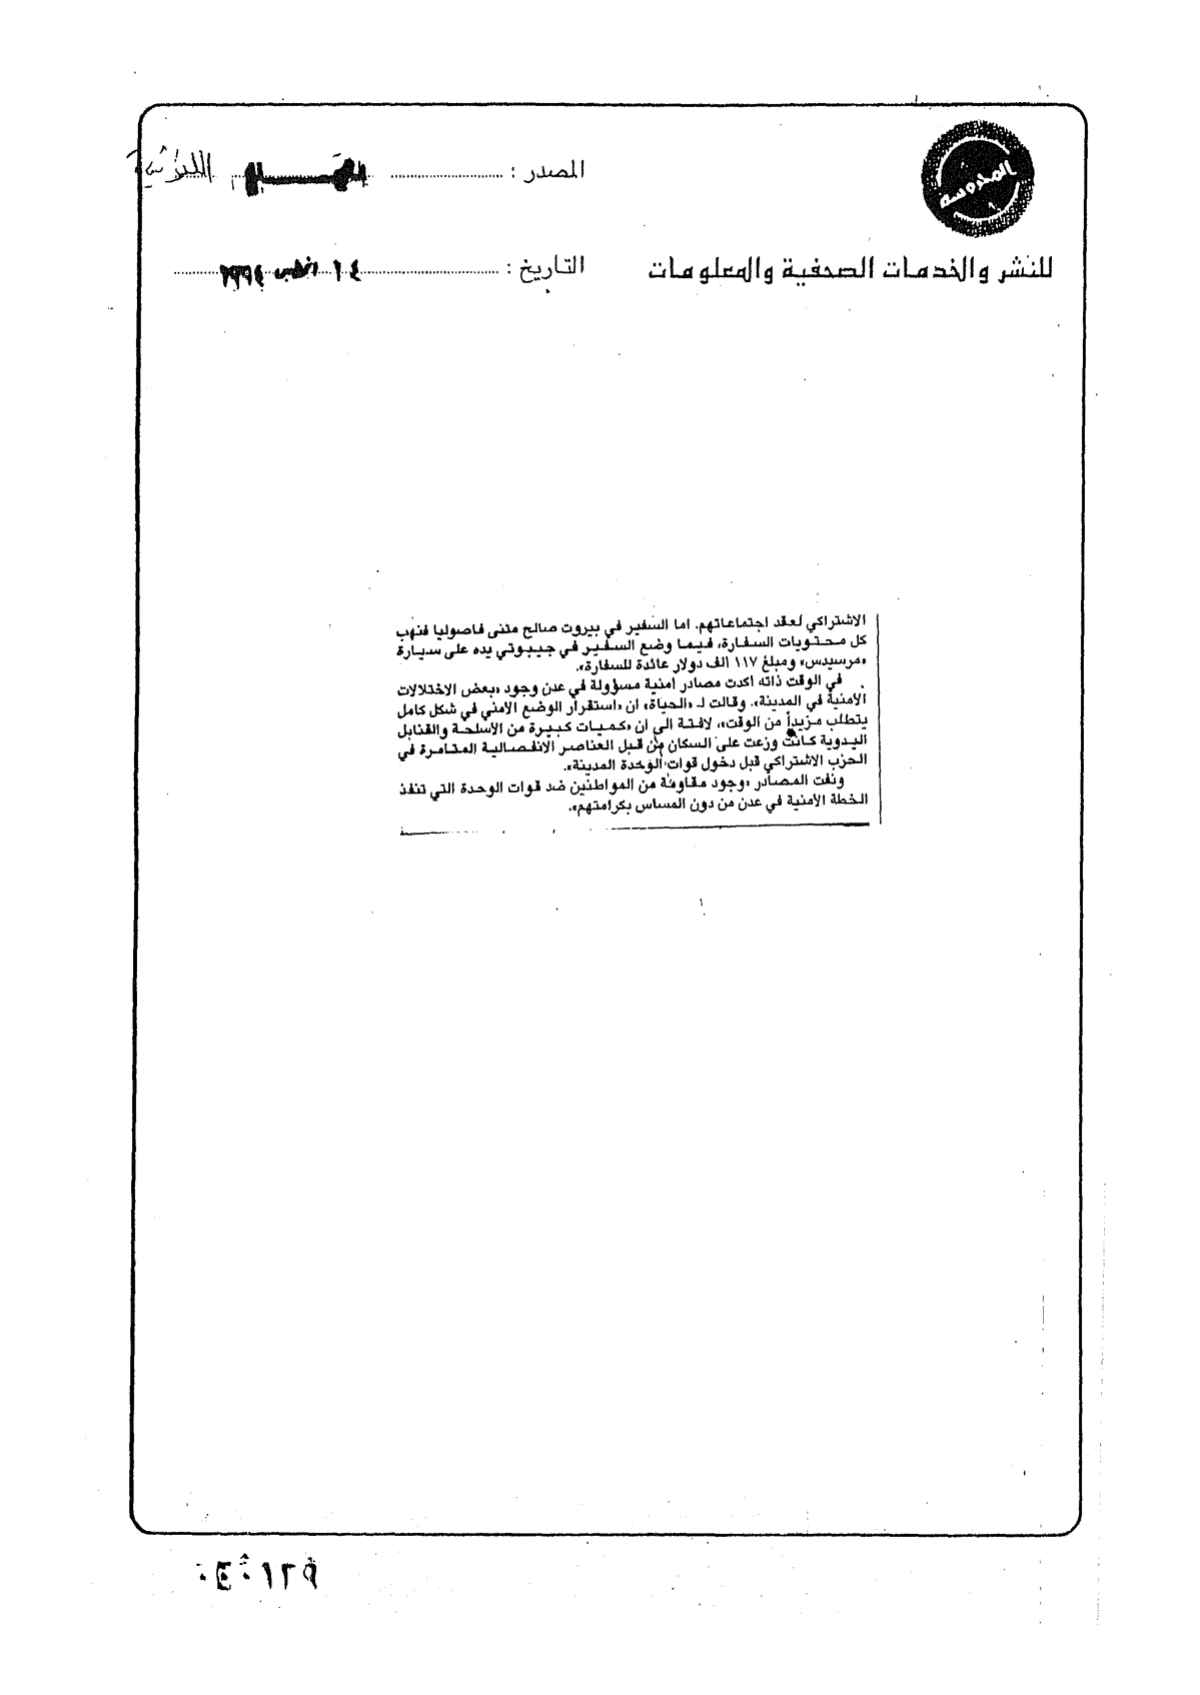 المدوسه
المصدر :
للنشر والخدمات الصحفية والمعلومات
التاريخ : ١٤ اغسطس ١٩٩٤
الاشتراكي لعقد اجتماعاتهم. اما السفير في بيروت صالح مثنى فاصوليا فنهب
كل محتويات السفارة، فيما وضع السفير في جيبوتي يده على سيارة
«مرسيدس» ومبلغ ١١٧ الف دولار عائدة للسفارة».
في الوقت ذاته اكدت مصادر امنية مسؤولة في عدن وجود «بعض الاختلالات
الأمنية في المدينة». وقالت لـ «الحياة» ان «استقرار الوضع الأمني في شكل كامل
يتطلب مزيداً من الوقت»، لافتة الى ان «كميات كبيرة من الأسلحة والقنابل
اليدوية كانت وزعت على السكان من قبل العناصر الانفصالية المتامرة في
الحزب الاشتراكي قبل دخول قوات الوحدة المدينة».
ونفت المصادر «وجود مقاومة من المواطنين ضد قوات الوحدة التي تنفذ
الخطة الأمنية في عدن من دون المساس بكرامتهم».